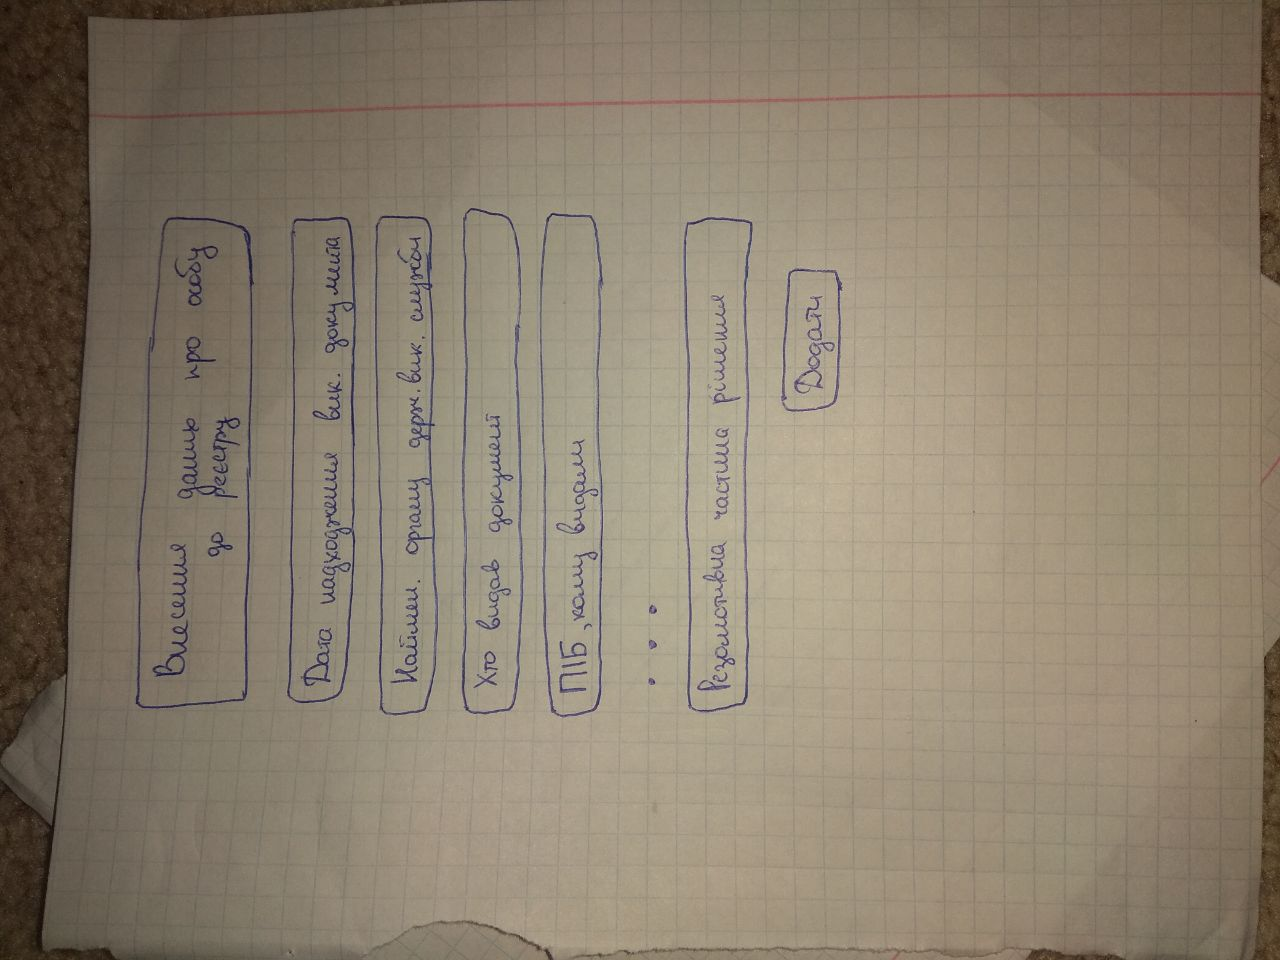 Внесення даних про особу
до реєстру
Дата надходження вик. документа
Наймен. органу держ. вик. служби
Хто видав документ
ПІБ, кому видали
. . .
Резолютивна частина рішення
Додати